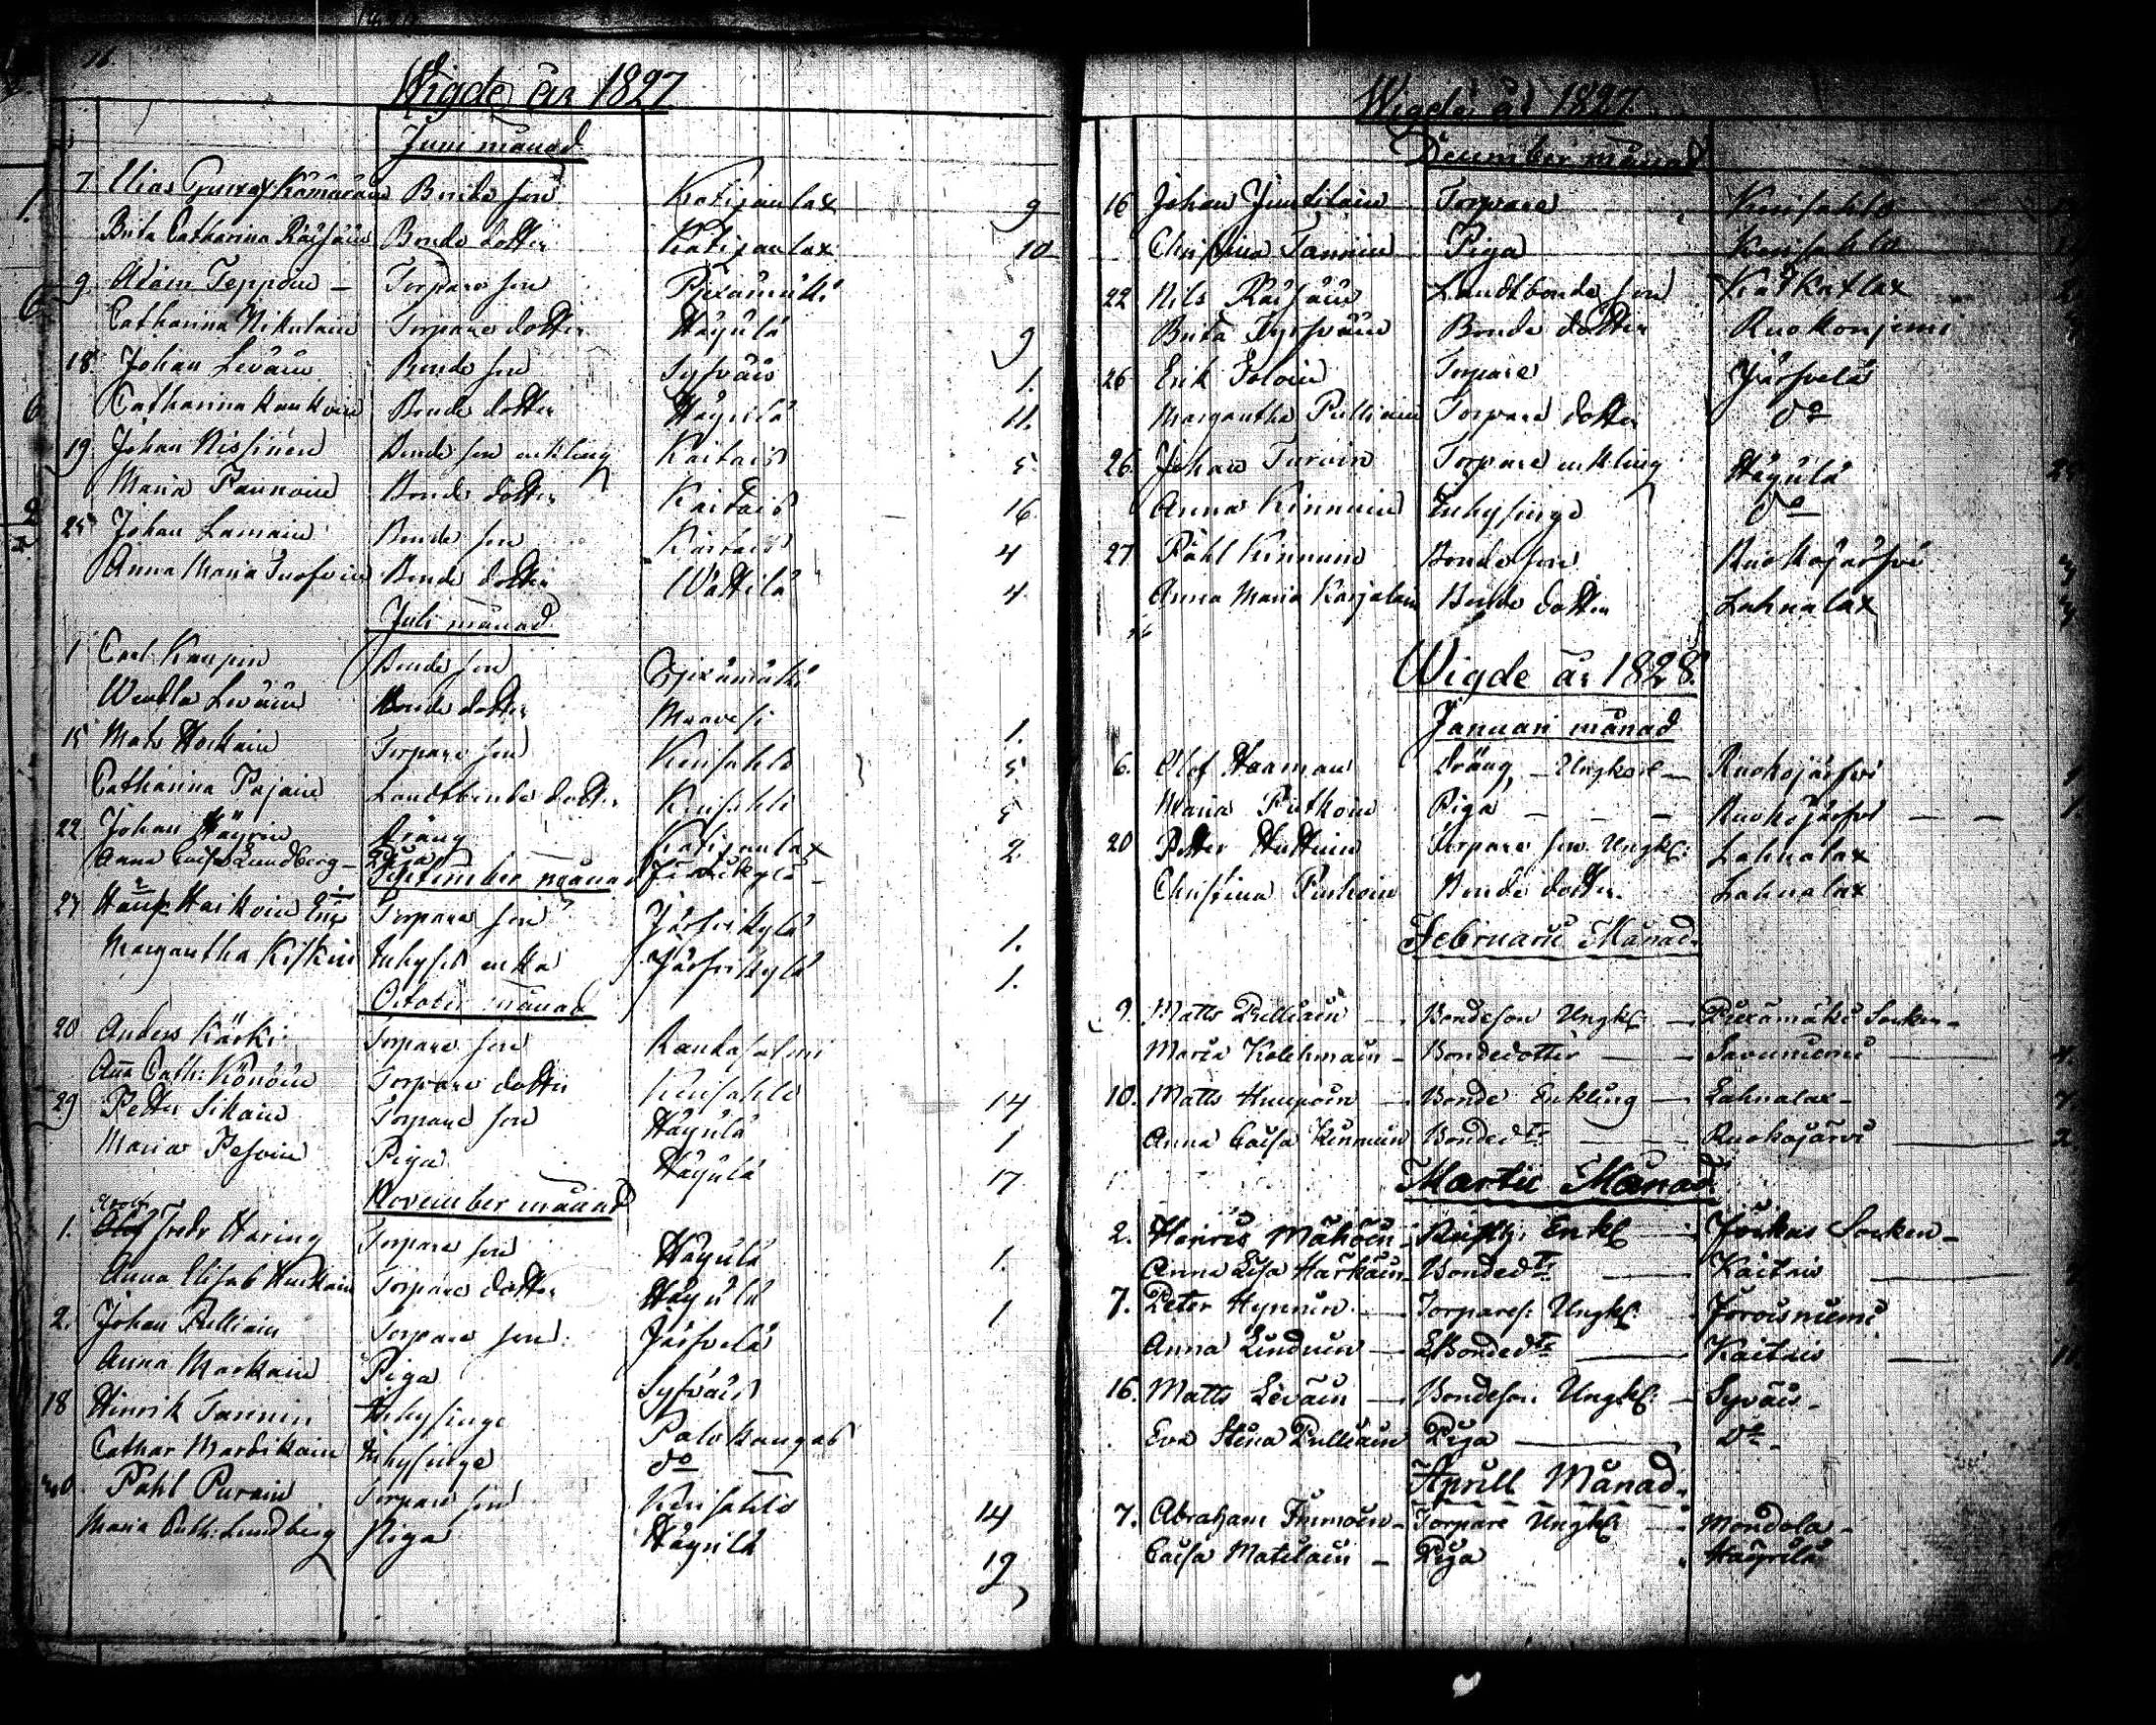 16.
Wigde år 1827
Juni månad
7. Elias Kämäräin Bonde son Kotisanlax 9
Brita Catharina Räisäin Bonde dotter Kotisanlax 10
9. Adam Teppoin Torpare son Piexämäki
Catharina Nikulain Torpare dotter Häyrilä 9
18. Johan Leväin Bonde son Syfväis 1.
Catharina Kaukoin Bonde dotter Häyrilä 11.
19. Johan Nissinen Bonde son enkling Kaitais 5
Maria Paunoin Bonde dotter Kaitais 16.
25 Johan Lamain Bonde son Kaitais 4
Anna Maria Bonde dotter Wättilä 4.
Juli månad
1 Carl Kaupin Bonde son Piexämäki
Wendla Leväin Bonde dotter Maavesi 1.
15 Mats Hockain Torpare son Kerisahlo 5
Catharina Pajain Landtbonde dotter Kerisahlo 5
22. Johan Häyrin Dräng Kotisanlax 2.
Anna Caisa Lundberg Piga
September månad
27 Haikoin Torpare son Järfvikylä 1.
Margaretha Kiskin Inhyses enka Järfvikylä 1.
October månad
20 Anders Kärki Torpare son Randasalmi
Anna Cath: Könöin Torpare dotter Kerisahlo 14
29 Petter Sikain Torpare son Häyrilä 1
Maria Pesoin Piga Häyrilä 17.
November månad
1. Fredr Haring Torpare son Häyrilä 1.
Anna Elisab Torpare dotter Häyrilä 1
2. Johan Pulliain Torpare son Järfvelä
Anna Markain Piga Syfväis
18 Hinrik Tarinin Inhysinge Palokangas
Cathar Mardikain Inhysinge do
30 Påhl Purain Torpare son Kerisahlo 14
Maria Cath: Lundberg Piga Häyrilä 12
Wigde år 1827.
December månad
16 Johan Juntilain Torpare Kerisahlo
Christina Tannin Piga Kerisahlo
22 Nils Räisäin Landtbonde son Kätkatlax
Brita Bonde dotter Ruokoniemi
26 Erik Torpare Järfvelä
Margaretha Pulliain Torpare dotter do
26. Johan Turoin Torpare enkling Häyrilä
Anna Kinnuin Inhysinge do
27 Påhl Kinnunen Bonde son Ruokojärfvi
Anna Maria Karjalain Bonde dotter Lahnalax
Wigde år 1828.
Januari månad
6. Olof Haaman Dräng – Ungkarl – Ruokojärfvi
Maria Putkoin Piga – – – Ruokojärfvi – –
20 Petter Huttuin Torpare son Ungk: Lahnalax
Christina Bonde dotter. Lahnalax
Februarii Månad.
9. Matts Pulliain – Bondeson Ungk: – Piexämäki Socken –
Maria Kolehmain – Bondedotter – Savuniemi – 4.
10. Matts Huupoin – Bonde Enkling – Lahnalax –
Anna Caisa Kinnuin Bondedtr – Ruokojärvi – 2.
Martii Månad.
2. Hinrics Mähöin Enkl – Jockas Socken –
Anna Lisa Härkäin Bondedtr – Kaitais –
7. Peter Hynnin – Torpares: Ungk: – Joroisniemi
Anna Linduin – Bondedtr – Kaitais –
16. Matts Leväin – Bondeson Ungk: – Syväis –
Eva Stina Pulliain Piga – do –
Aprill Månad.
7. Abraham Immoin – Torpare Ungk: – Mondola –
Caisa Matilain – Piga Häyrilä